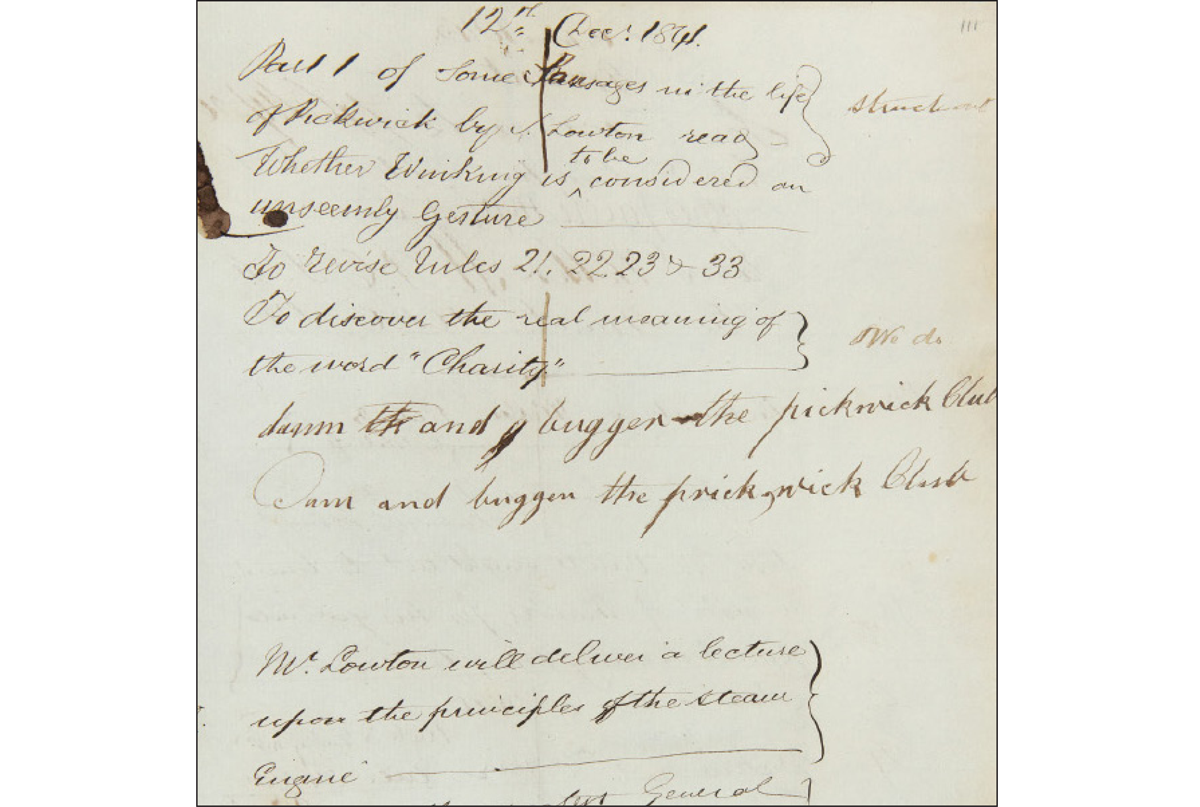 111
12th Decr. 1841.
Part 1 of Some Passages in the life struck out
of Pickwick by S. Lowton read
Whether Winking is to be considered an
unseemly Gesture
To revise rules 21. 22 23 & 33
To discover the real meaning of
the word "Charity" We do
damn th and g bugger the pickwick Club
Dam and buggen the prick,wick Club
Mr. Lowton will deliver a lecture
upon the principles of the Steam
Engine
General